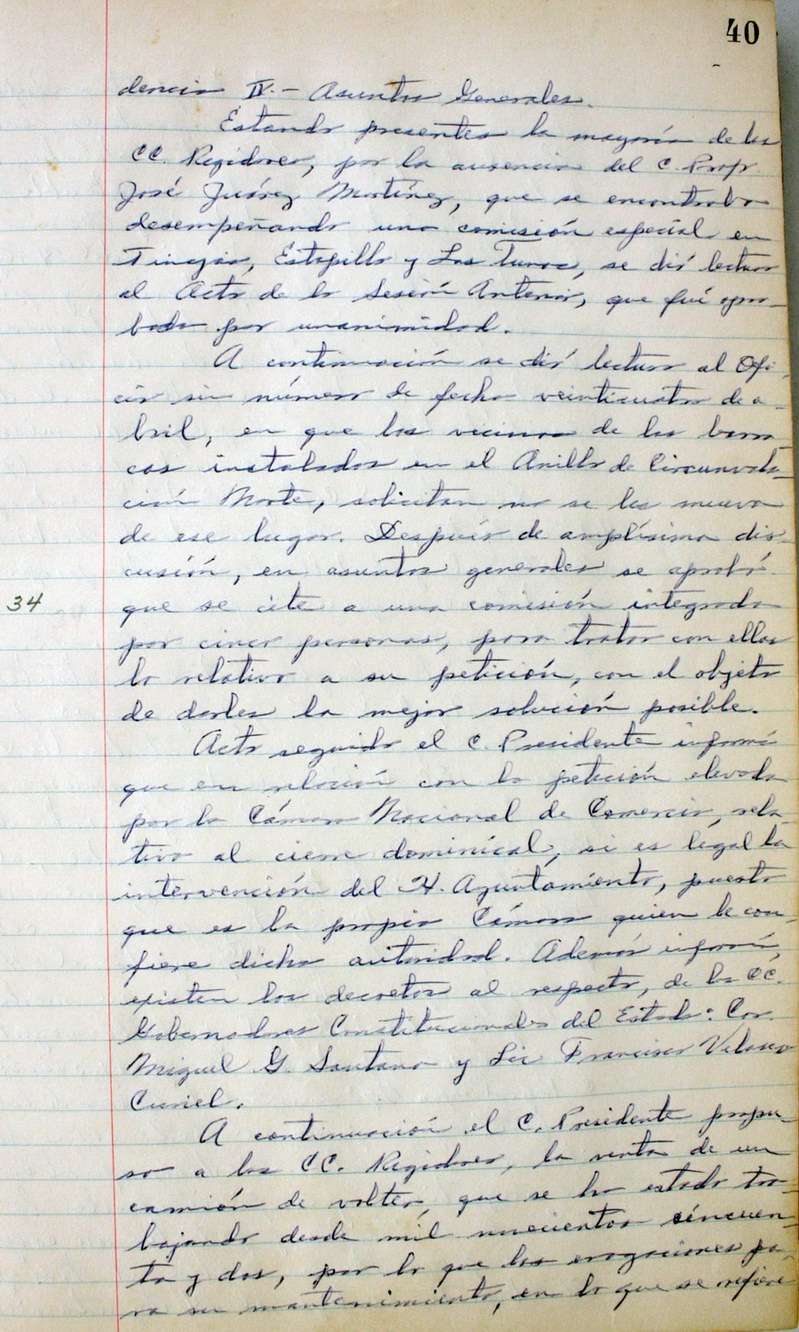 40
dencia IV.- Asuntos Generales.
Estando presentes la mayoría de los
CC. Regidores, por la ausencia del C. Profr.
José Juárez Martínez, que se encontraba
desempeñando una comisión especial en
Tinajas, Estapilla y Las Tunas, se dió lectura
al Acta de la Sesión Anterior, que fué apro-
bada por unanimidad.
A continuación se dió lectura al Ofi-
cio sin número de fecha veinticuatro de a-
bril, en que los vecinos de las barra-
cas instaladas en el Anillo de Circunvala-
ción Norte, solicitan no se les mueva
de ese lugar. Después de amplísima dis-
cusión, en asuntos generales se aprobó
34 que se cite a una comisión integrada
por cinco personas, para tratar con ellas
lo relativo a su petición, con el objeto
de darles la mejor solución posible.
Acto seguido el C. Presidente informó
que en relación con la petición elevada
por la Cámara Nacional de Comercio, rela-
tiva al cierre dominical, si es legal la
intervención del H. Ayuntamiento, puesto
que es la propia Cámara quien le con-
fiere dicha autoridad. Además informó,
existen los decretos al respecto, de los CC.
Gobernadores Constitucionales del Estado: Cor.
Miguel G. Santana y Lic Francisco Velasco
Curiel.
A continuación el C. Presidente propu-
so a los CC. Regidores, la venta de un
camión de volteo, que se ha estado tra-
bajando desde mil novecientos cincuen-
ta y dos, por lo que las erogaciones pa-
ra su mantenimiento, en lo que se refiere